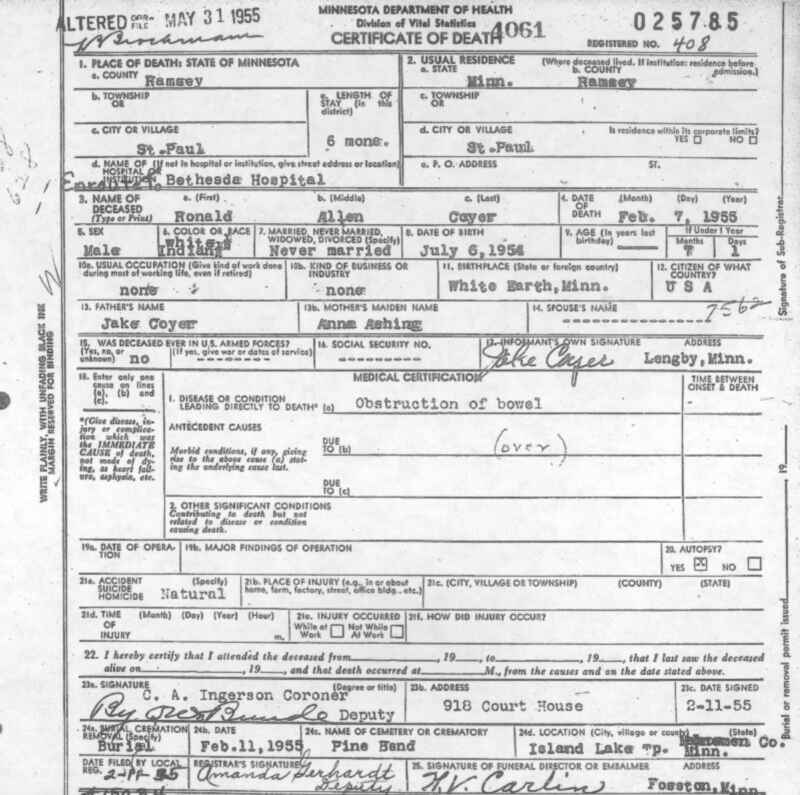 ALTERED ON FILE MAY 31 1955
MINNESOTA DEPARTMENT OF HEALTH
Division of Vital Statistics
CERTIFICATE OF DEATH 4061
025785
REGISTERED NO. 408
1. PLACE OF DEATH: STATE OF MINNESOTA
a. COUNTY Ramsey
b. TOWNSHIP OR
c. LENGTH OF STAY (in this district) 6 mons.
c. CITY OR VILLAGE St.Paul
d. NAME OF HOSPITAL OR INSTITUTION (If not in hospital or institution, give street address or location)
Enroute to Bethesda Hospital
2. USUAL RESIDENCE (Where deceased lived. If institution: residence before admission.)
a. STATE Minn. b. COUNTY Ramsey
c. TOWNSHIP OR
d. CITY OR VILLAGE St.Paul
Is residence within its corporate limits? YES NO
e. P. O. ADDRESS ST.
3. NAME OF DECEASED (Type or Print)
a. (First) Ronald b. (Middle) Allen c. (Last) Coyer
4. DATE OF DEATH (Month) (Day) (Year) Feb. 7, 1955
5. SEX Male
6. COLOR OR RACE White & Indian
7. MARRIED, NEVER MARRIED, WIDOWED, DIVORCED (Specify) Never married
8. DATE OF BIRTH July 6,1954
9. AGE (In years last birthday) If Under 1 Year Months 7 Days 1
10a. USUAL OCCUPATION (Give kind of work done during most of working life, even if retired) none
10b. KIND OF BUSINESS OR INDUSTRY none
11. BIRTHPLACE (State or foreign country) White Earth,Minn.
12. CITIZEN OF WHAT COUNTRY? U S A
13. FATHER'S NAME Jake Coyer
13b. MOTHER'S MAIDEN NAME Anna Ashing
14. SPOUSE'S NAME ---------------
7562
15. WAS DECEASED EVER IN U.S. ARMED FORCES?
(Yes, no, or unknown) no (If yes, give war or dates of service) ---------
16. SOCIAL SECURITY NO. ---------
17. INFORMANT'S OWN SIGNATURE ADDRESS
Jake Coyer Lengby,Minn.
18. Enter only one cause on lines (a), (b) and (c).
MEDICAL CERTIFICATION
TIME BETWEEN ONSET & DEATH
1. DISEASE OR CONDITION LEADING DIRECTLY TO DEATH* (a) Obstruction of bowel
*(Give disease, injury or complication which was the IMMEDIATE CAUSE of death, not mode of dying, as heart failure, asphyxia, etc.
ANTECEDENT CAUSES
Morbid conditions, if any, giving rise to the above cause (a) stating the underlying cause last.
DUE TO (b) (over)
DUE TO (c)
2. OTHER SIGNIFICANT CONDITIONS
Contributing to death but not related to disease or condition causing death.
19a. DATE OF OPERATION
19b. MAJOR FINDINGS OF OPERATION
20. AUTOPSY? YES X NO
21a. ACCIDENT SUICIDE HOMICIDE (Specify) Natural
21b. PLACE OF INJURY (e.g., in or about home, farm, factory, street, office bldg., etc.)
21c. (CITY, VILLAGE OR TOWNSHIP) (COUNTY) (STATE)
21d. TIME OF INJURY (Month) (Day) (Year) (Hour) m.
21e. INJURY OCCURRED While at Work Not While At Work
21f. HOW DID INJURY OCCUR?
22. I hereby certify that I attended the deceased from , 19 , to , 19 , that I last saw the deceased
alive on , 19 , and that death occurred at M., from the causes and on the date stated above.
23a. SIGNATURE (Degree or title)
C. A. Ingerson Coroner
By Deputy
23b. ADDRESS 918 Court House
23c. DATE SIGNED 2-11-55
24a. BURIAL, CREMATION REMOVAL (Specify) Burial
24b. DATE Feb.11,1955
24c. NAME OF CEMETERY OR CREMATORY Pine Hand
24d. LOCATION (City, village or county) (State)
Island Lake Tp. Co. Minn.
DATE FILED BY LOCAL REG.
REGISTRAR'S SIGNATURE Amanda Gerhardt Deputy
25. SIGNATURE OF FUNERAL DIRECTOR OR EMBALMER ADDRESS
H.V. Carlin Fosston,Minn.
WRITE PLAINLY, WITH UNFADING BLACK INK
MARGIN RESERVED FOR BINDING
Signature of Sub-Registrar
19
Burial or removal permit issued